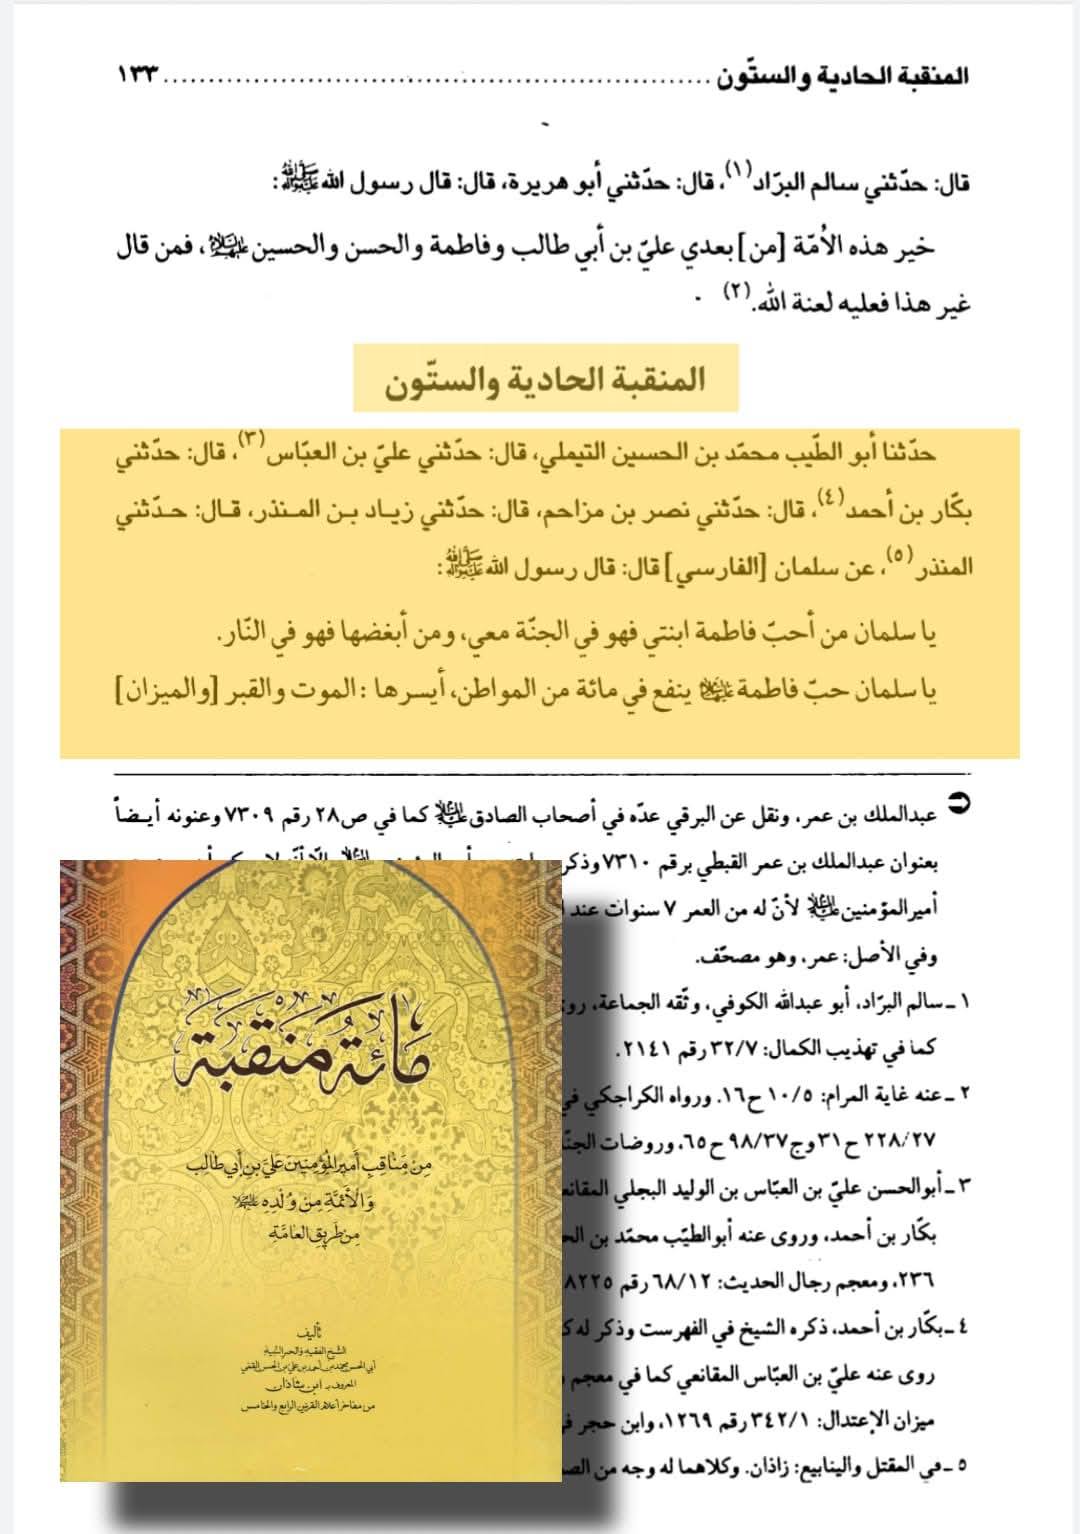 المنقبة الحادية والستّون ........................................................ ١٣٣
قال: حدّثني سالم البرّاد(١)، قال: حدّثني أبو هريرة، قال: قال رسول الله ﷺ:
خير هذه الأُمّة [من] بعدي عليّ بن أبي طالب وفاطمة والحسن والحسين عليهم السلام، فمن قال
غير هذا فعليه لعنة الله.(٢)
المنقبة الحادية والستّون
حدّثنا أبو الطّيب محمّد بن الحسين التيملي، قال: حدّثني عليّ بن العبّاس(٣)، قال: حدّثني
بكّار بن أحمد(٤)، قال: حدّثني نصر بن مزاحم، قال: حدّثني زياد بن المنذر، قال: حدّثني
المنذر(٥)، عن سلمان [الفارسي] قال: قال رسول الله ﷺ:
يا سلمان من أحبّ فاطمة ابنتي فهو في الجنّة معي، ومن أبغضها فهو في النّار.
يا سلمان حبّ فاطمة عليها السلام ينفع في مائة من المواطن، أيسرها : الموت والقبر [والميزان]
عبدالملك بن عمر، ونقل عن البرقي عدّه في أصحاب الصادق عليه السلام كما في ص٢٨ رقم ٧٣٠٩ وعنونه أيضاً
بعنوان عبدالملك بن عمر القبطي برقم ٧٣١٠ وذكر
أميرالمؤمنين عليه السلام لأنّ له من العمر ٧ سنوات عند
وفي الأصل: عمر، وهو مصحّف.
١ ـ سالم البرّاد، أبو عبدالله الكوفي، وثّقه الجماعة،
كما في تهذيب الكمال: ٣٢/٧ رقم ٢١٤١.
٢ ـ عنه غاية المرام: ١٠/٥ ح١٦. ورواه الكراجكي في
٢٢٨/٢٧ ح٣١ وج٩٨/٣٧ ح٦٥، وروضات
٣ ـ أبوالحسن عليّ بن العبّاس بن الوليد البجلي
بكّار بن أحمد، وروى عنه أبوالطيّب محمّد بن
٢٣٦، ومعجم رجال الحديث: ٦٨/١٢ رقم ٨٢٢٥
٤ ـ بكّار بن أحمد، ذكره الشيخ في الفهرست وذكر له
روى عنه عليّ بن العبّاس المقانعي كما في معجم
ميزان الإعتدال: ٣٤٢/١ رقم ١٢٦٩، وابن حجر
٥ ـ في المقتل والينابيع: زاذان. وكلاهما له وجه من
مائة منقبة
من مناقب أميرالمؤمنين علي بن أبي طالب
والأئمة من ولده عليهم السلام
من طريق العامة
تأليف
الشيخ الفقيه
أبي الحسن محمد بن أحمد بن علي بن الحسن القمي
المعروف بـ ابن شاذان
من مفاخر أعلام القرنين الرابع والخامس